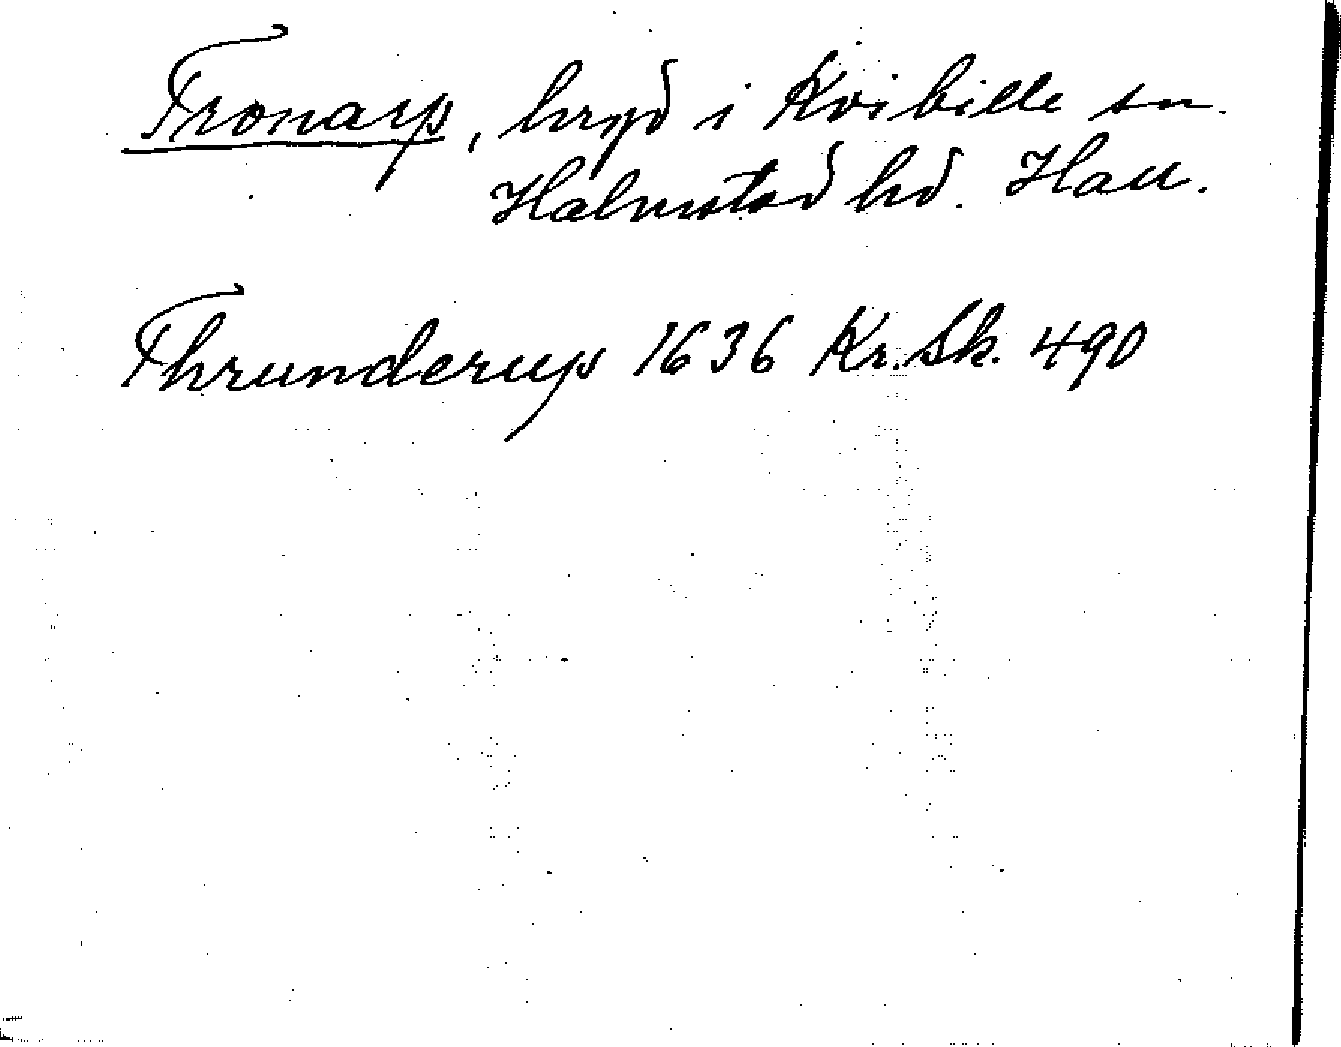 Tronarp, hryd i Kvibille sn.
Halmstad hd. Hall.
Thrunderup 1636 Kr. Sk. 490